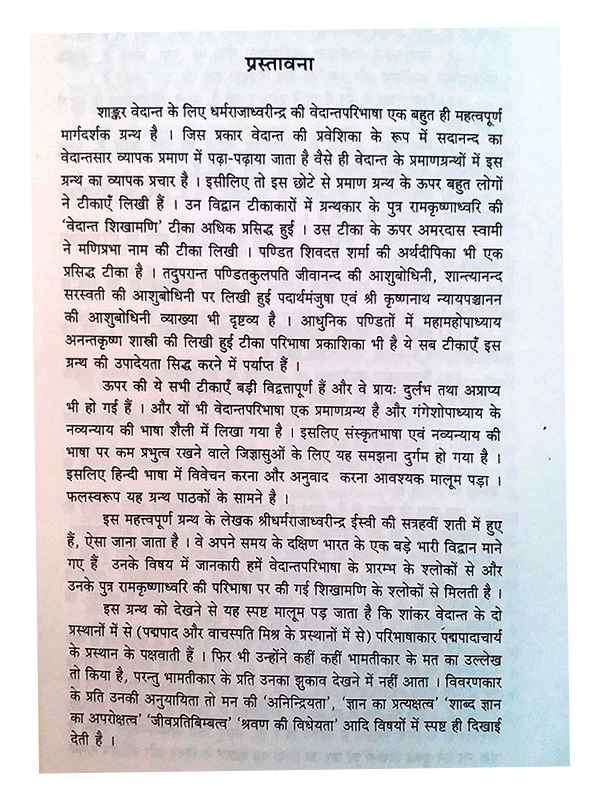 प्रस्तावना
शाङ्कर वेदान्त के लिए धर्मराजाध्वरीन्द्र की वेदान्तपरिभाषा एक बहुत ही महत्वपूर्ण
मार्गदर्शक ग्रन्थ है । जिस प्रकार वेदान्त की प्रवेशिका के रूप में सदानन्द का
वेदान्तसार व्यापक प्रमाण में पढ़ा-पढ़ाया जाता है वैसे ही वेदान्त के प्रमाणग्रन्थों में इस
ग्रन्थ का व्यापक प्रचार है । इसीलिए तो इस छोटे से प्रमाण ग्रन्थ के ऊपर बहुत लोगों
ने टीकाएँ लिखी हैं । उन विद्वान टीकाकारों में ग्रन्थकार के पुत्र रामकृष्णाध्वरि की
‘वेदान्त शिखामणि’ टीका अधिक प्रसिद्ध हुई । उस टीका के ऊपर अमरदास स्वामी
ने मणिप्रभा नाम की टीका लिखी । पण्डित शिवदत्त शर्मा की अर्थदीपिका भी एक
प्रसिद्ध टीका है । तदुपरान्त पण्डितकुलपति जीवानन्द की आशुबोधिनी, शान्त्यानन्द
सरस्वती की आशुबोधिनी पर लिखी हुई पदार्थमंजुषा एवं श्री कृष्णनाथ न्यायपञ्चानन
की आशुबोधिनी व्याख्या भी दृष्टव्य है । आधुनिक पण्डितों में महामहोपाध्याय
अनन्तकृष्ण शास्त्री की लिखी हुई टीका परिभाषा प्रकाशिका भी है ये सब टीकाएँ इस
ग्रन्थ की उपादेयता सिद्ध करने में पर्याप्त हैं ।
ऊपर की ये सभी टीकाएँ बड़ी विद्वत्तापूर्ण हैं और वे प्रायः दुर्लभ तथा अप्राप्य
भी हो गई हैं । और यों भी वेदान्तपरिभाषा एक प्रमाणग्रन्थ है और गंगेशोपाध्याय के
नव्यन्याय की भाषा शैली में लिखा गया है । इसलिए संस्कृतभाषा एवं नव्यन्याय की
भाषा पर कम प्रभुत्व रखने वाले जिज्ञासुओं के लिए यह समझना दुर्गम हो गया है ।
इसलिए हिन्दी भाषा में विवेचन करना और अनुवाद करना आवश्यक मालूम पड़ा ।
फलस्वरूप यह ग्रन्थ पाठकों के सामने है ।
इस महत्त्वपूर्ण ग्रन्थ के लेखक श्रीधर्मराजाध्वरीन्द्र ईस्वी की सत्रहवीं शती में हुए
हैं, ऐसा जाना जाता है । वे अपने समय के दक्षिण भारत के एक बड़े भारी विद्वान माने
गए हैं उनके विषय में जानकारी हमें वेदान्तपरिभाषा के प्रारम्भ के श्लोकों से और
उनके पुत्र रामकृष्णाध्वरि की परिभाषा पर की गई शिखामणि के श्लोकों से मिलती है ।
इस ग्रन्थ को देखने से यह स्पष्ट मालूम पड़ जाता है कि शांकर वेदान्त के दो
प्रस्थानों में से (पद्मपाद और वाचस्पति मिश्र के प्रस्थानों में से) परिभाषाकार पद्मपादाचार्य
के प्रस्थान के पक्षवाती हैं । फिर भी उन्होंने कहीं कहीं भामतीकार के मत का उल्लेख
तो किया है, परन्तु भामतीकार के प्रति उनका झुकाव देखने में नहीं आता । विवरणकार
के प्रति उनकी अनुयायिता तो मन की ‘अनिन्द्रियता’, ‘ज्ञान का प्रत्यक्षत्व’ ‘शाब्द ज्ञान
का अपरोक्षत्व’ ‘जीवप्रतिबिम्बत्व’ ‘श्रवण की विधेयता’ आदि विषयों में स्पष्ट ही दिखाई
देती है ।